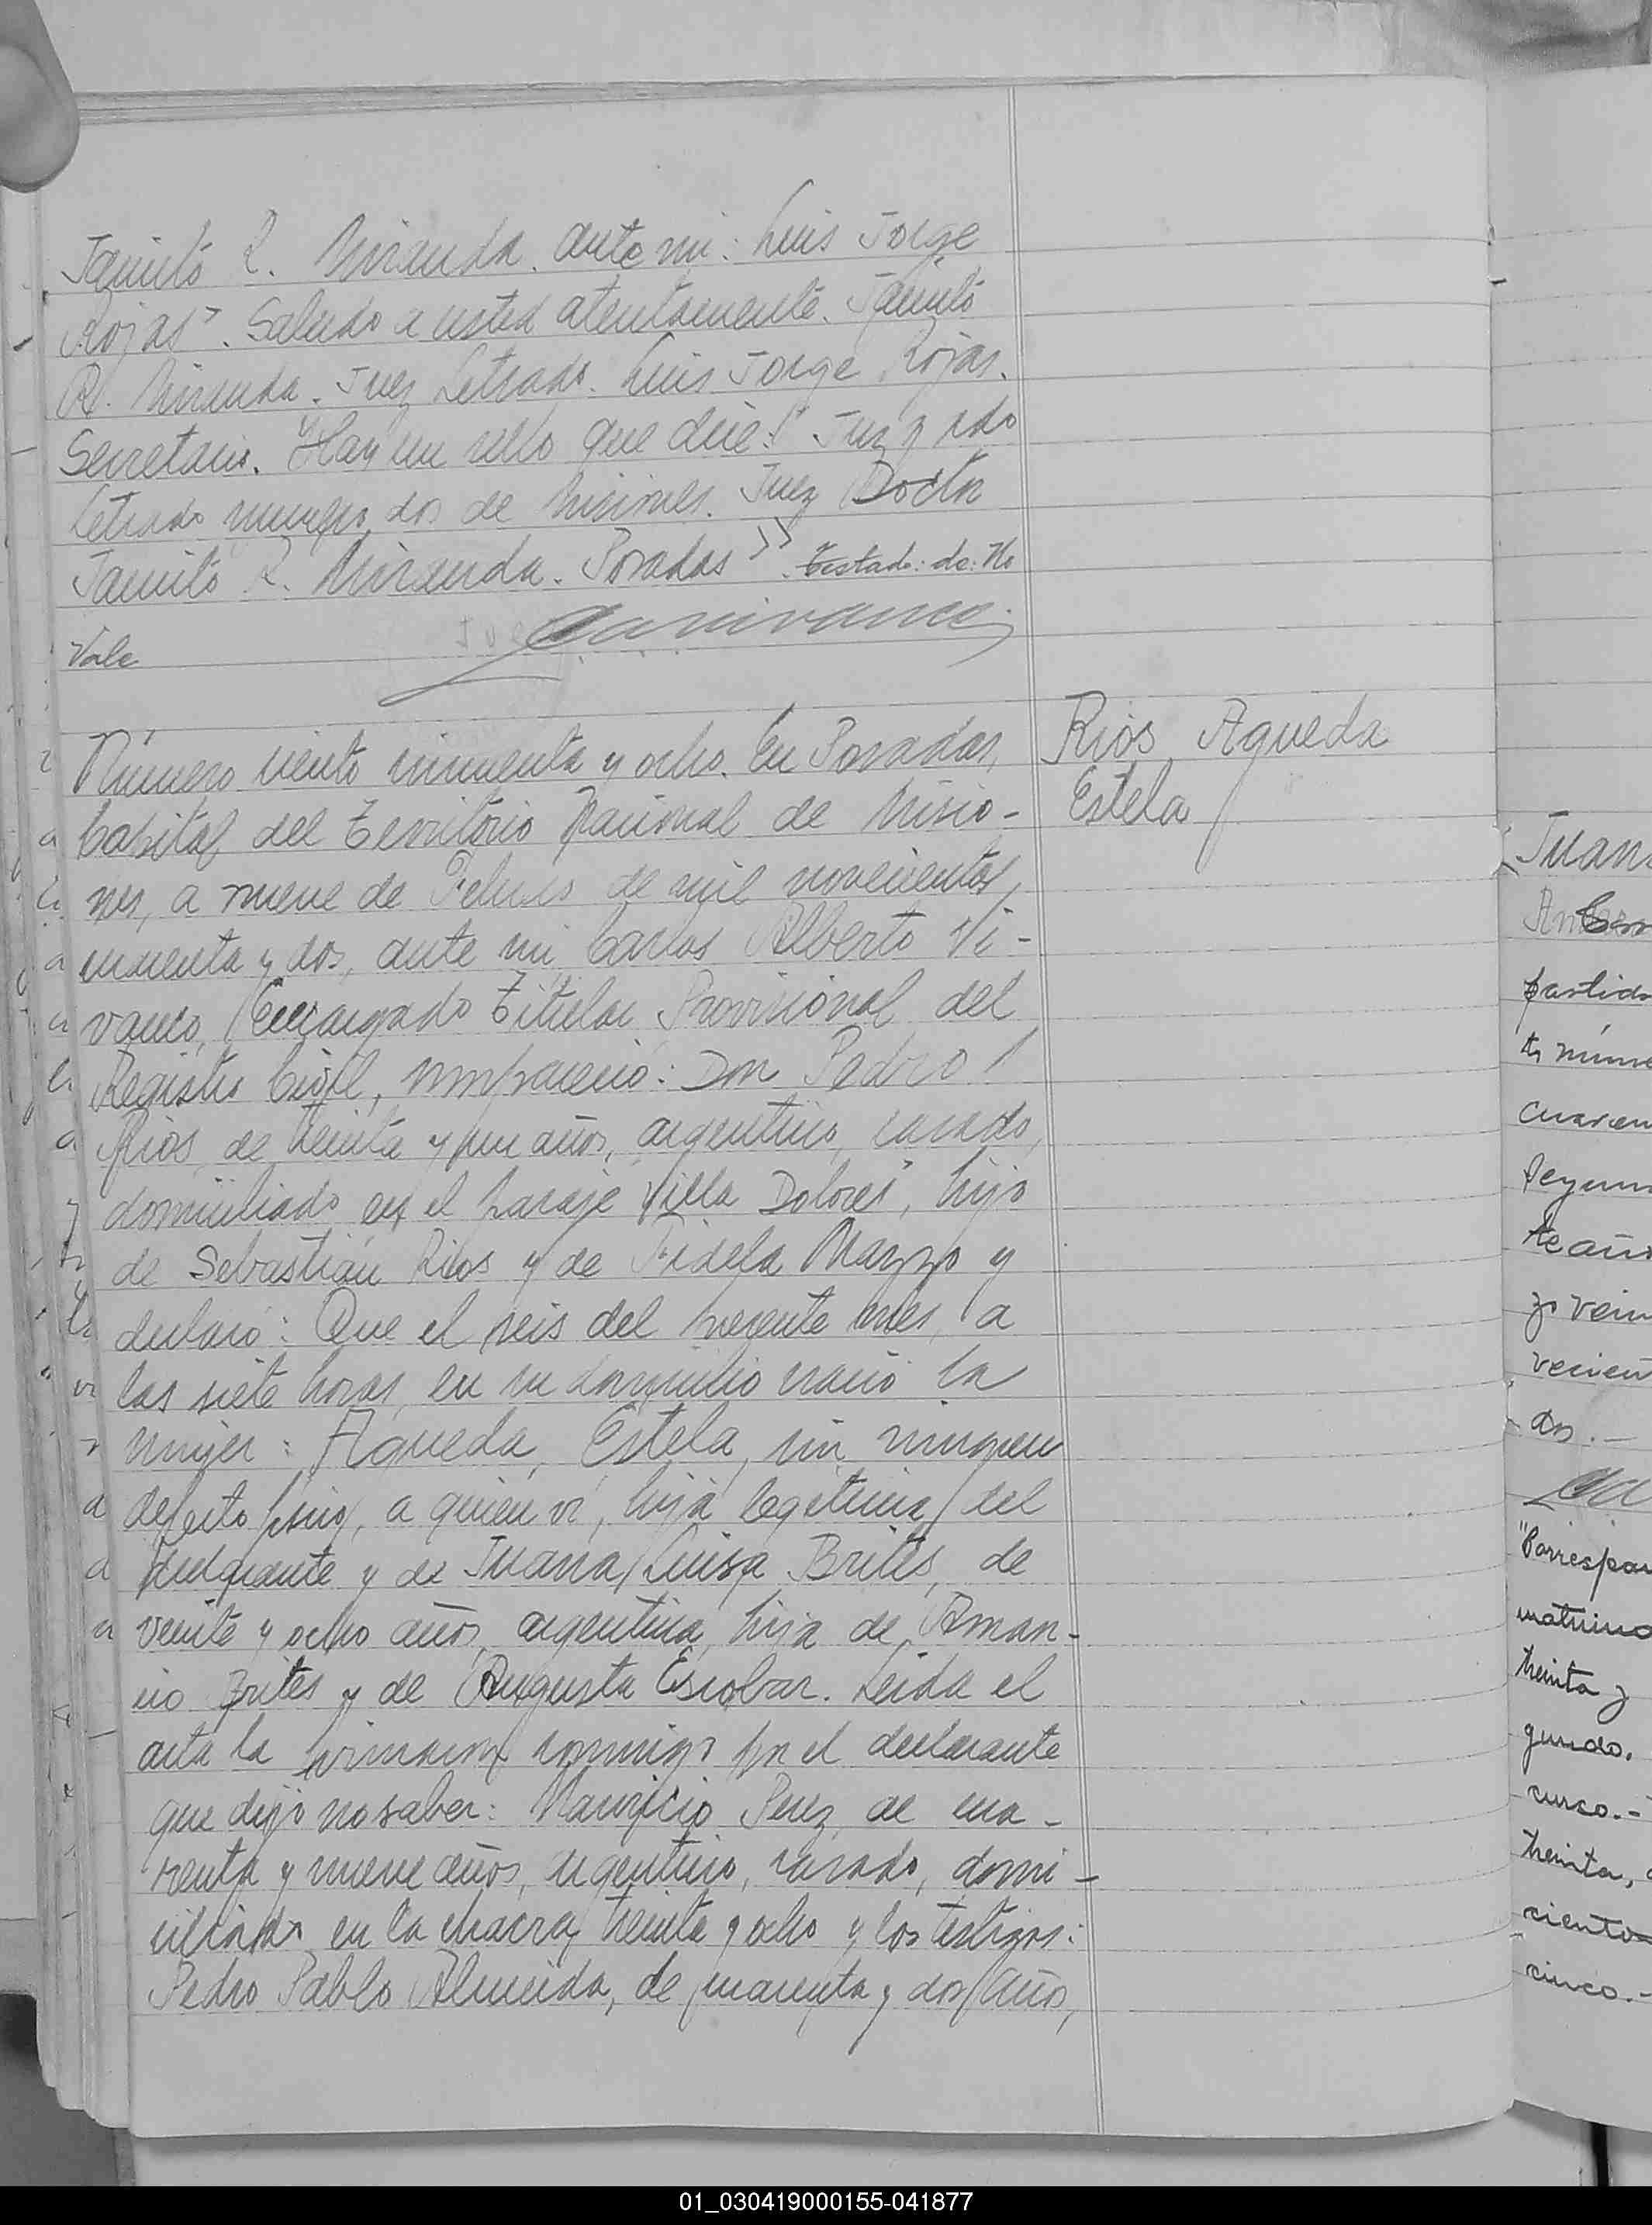 Jacinto R. Miranda. Ante mi: Luis Jorge
Rojas". Saludo a usted atentamente. Jacinto
R. Miranda. Juez Letrado. Luis Jorge Rojas.
Secretario. Hay un sello que dice: "Juzgado
Letrado numero dos de Misiones. Juez Doctor
Jacinto R. Miranda. Posadas". Testado: de: No
Vale
Número ciento cincuenta y ocho. En Posadas,
Capital del Territorio Nacional de Misio-
nes, a nueve de Febrero de mil novecientos
cincuenta y dos, ante mi Carlos Alberto Vi-
vanco, Encargado Titular Provisional del
Registro Civil, compareció: Don Pedro
Rios, de treinta y un años, argentino, casado,
domiciliado en el paraje Villa Dolores, hijo
de Sebastián Rios y de Fidela Mazzo y
declaró: Que el seis del presente mes, a
las siete horas, en su domicilio nació la
mujer: Agueda, Estela, sin ningun
defecto fisico, a quien vi, hija legitima del
declarante y de Juana Luisa Brites, de
veinte y ocho años, argentina, hija de Aman-
cio Brites y de Augusta Escobar. Leida el
acta la firmaron conmigo por el declarante
que dijo no saber: Mauricio Perez, de cua-
renta y nueve años, argentino, casado, domi-
ciliado en la chacra treinta y ocho y los testigos:
Pedro Pablo Almeida, de cuarenta y dos años,
Rios Agueda
Estela
Juan
partido
cuaren
Segun
te año
y vein
dos.-
"Corrrespon
matrimo
treinta y
gundo.
cinco.-
treinta,
ciento
cinco.-
01_030419000155-041877